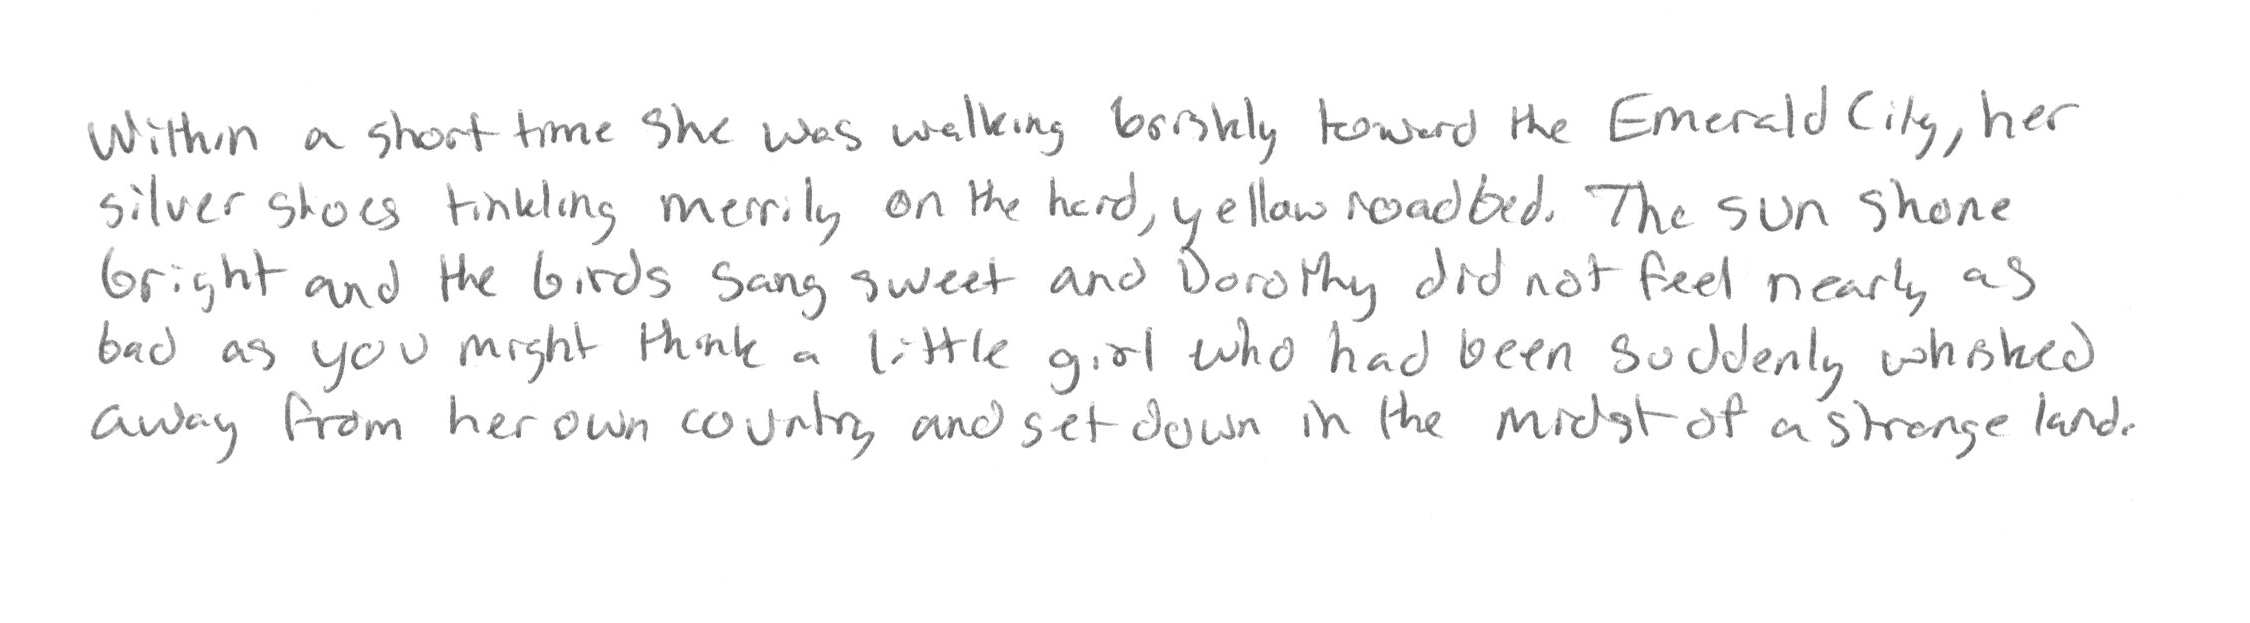 Within a short time she was walking briskly toward the Emerald City, her
silver shoes tinkling merrily on the hard, yellow roadbed. The sun shone
bright and the birds sang sweet and Dorothy did not feel nearly as
bad as you might think a little girl who had been suddenly whisked
away from her own country and set down in the midst of a strange land.